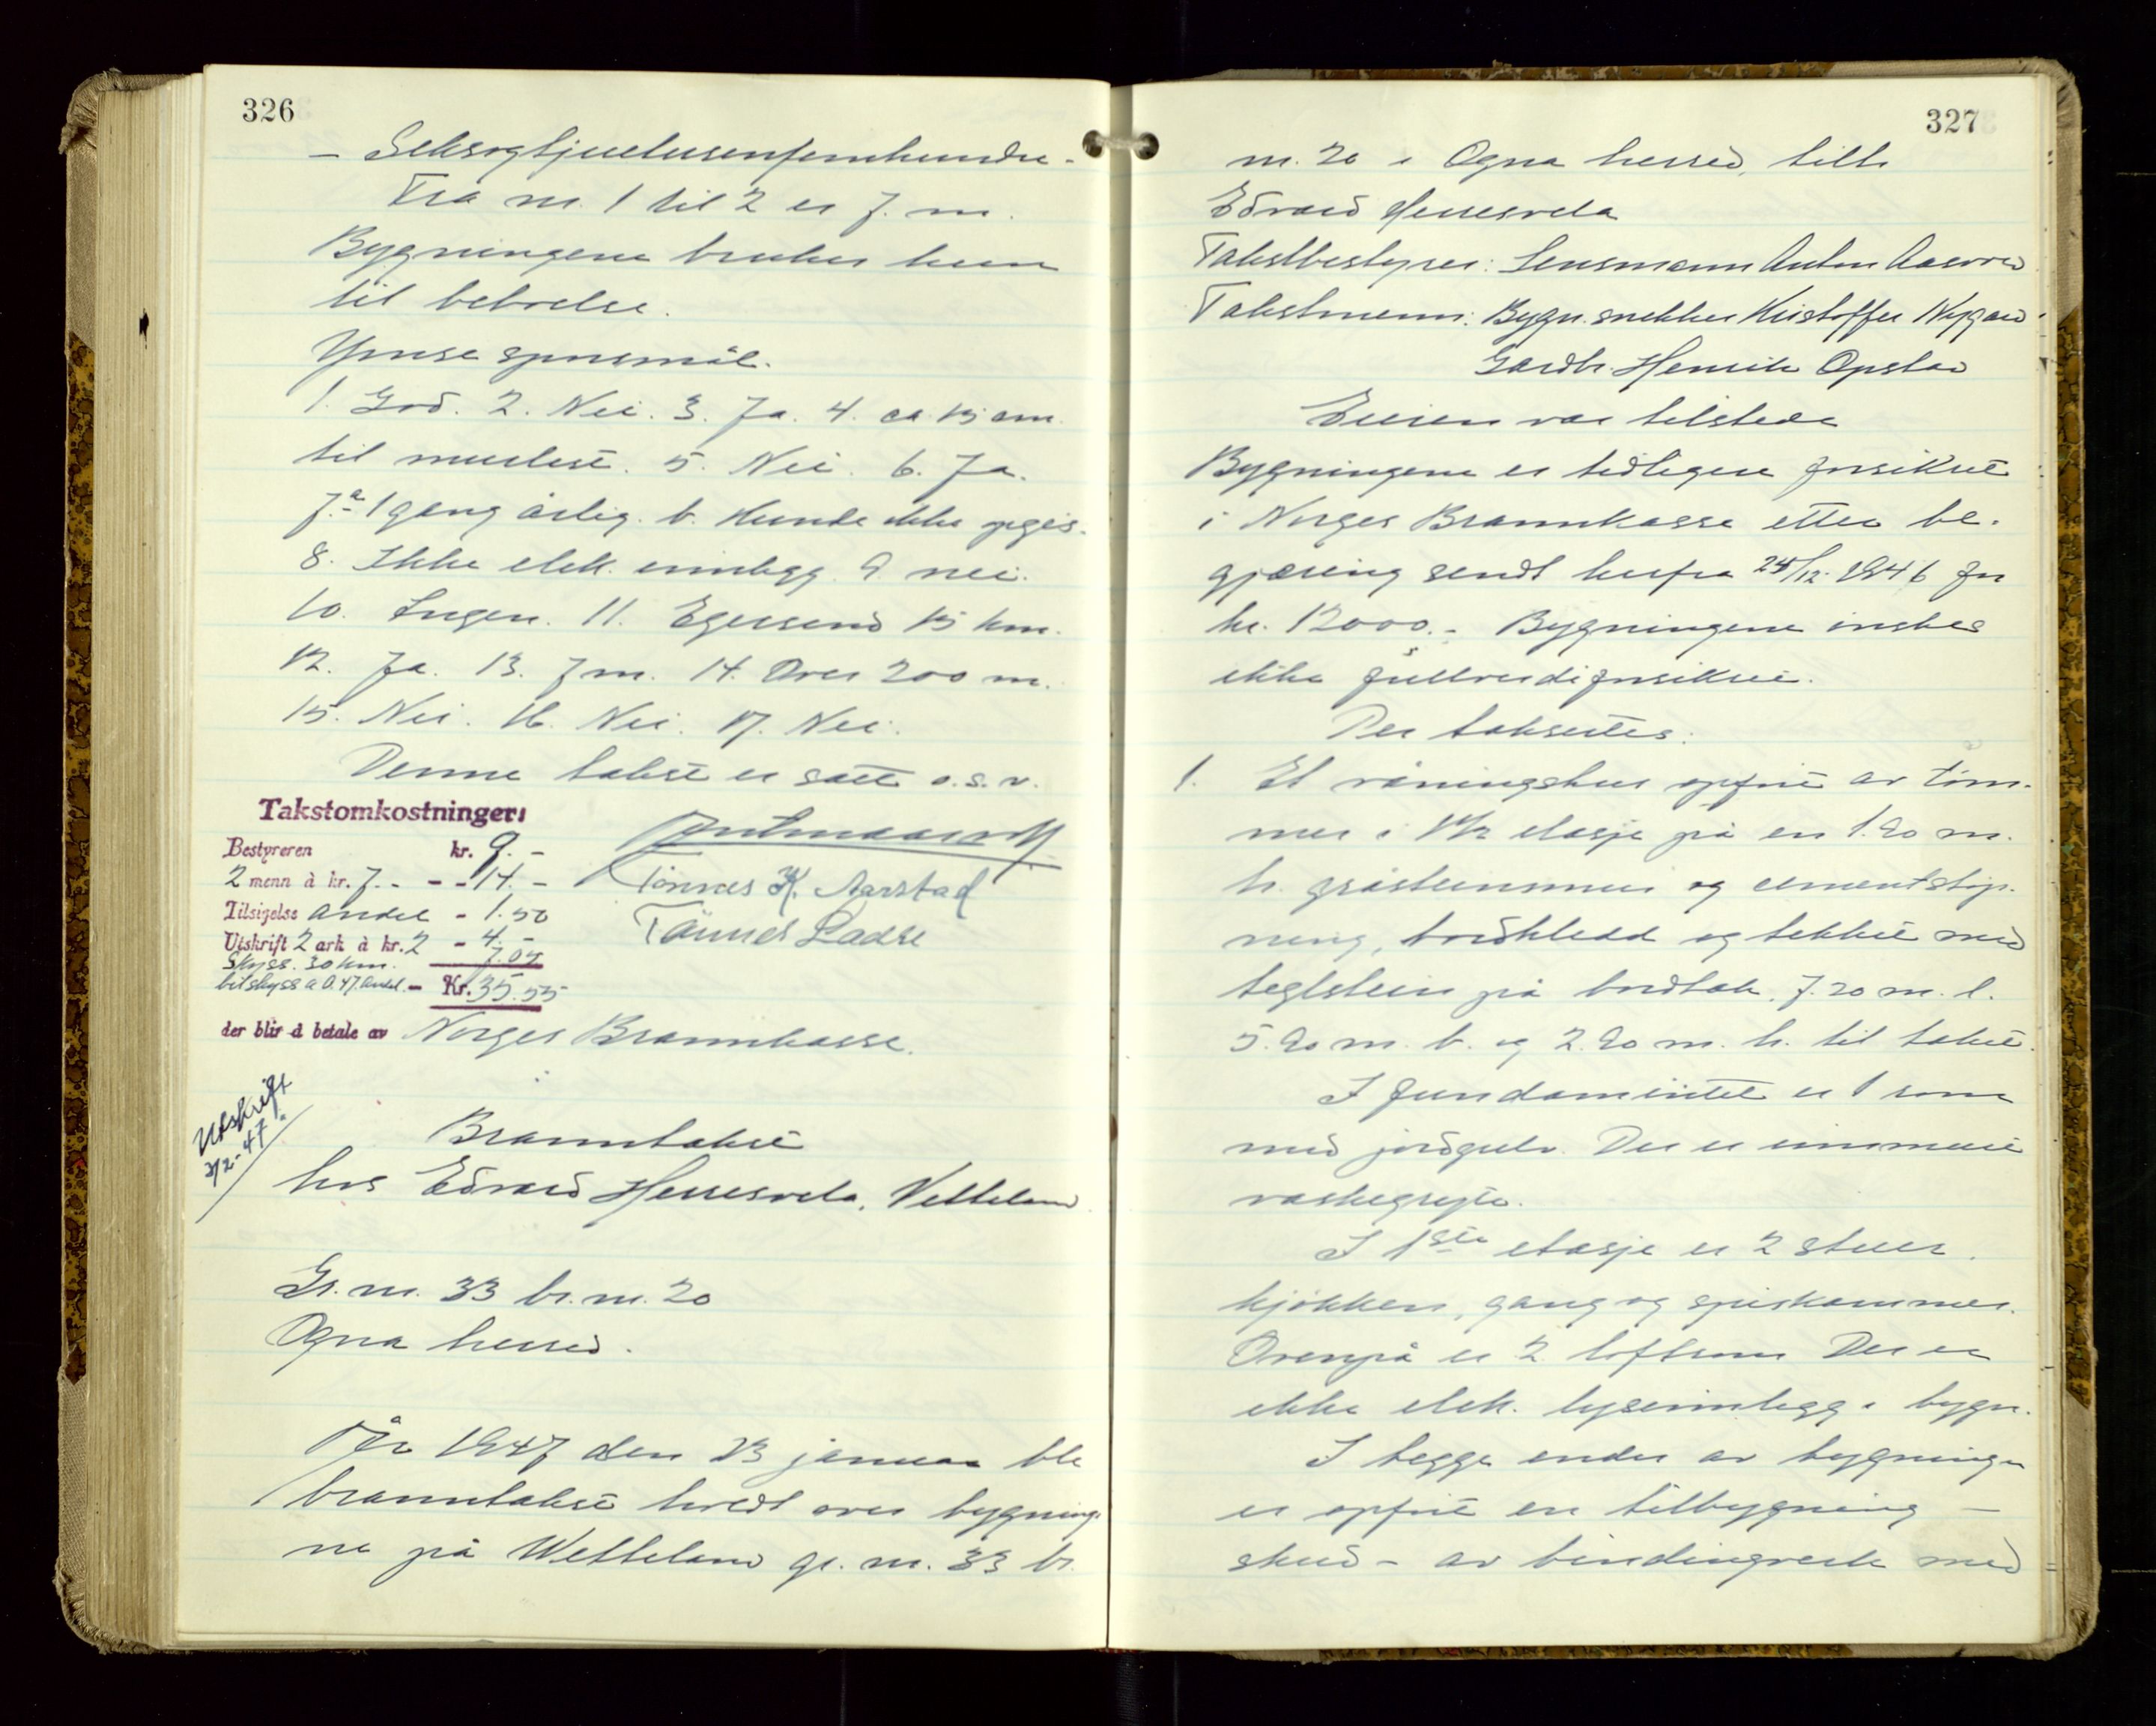 326
- Seksogtjuetusenfemhundre -
Fra nr. 1 til 2 er 7. m.
Bygningene brukes kun
til beboelse.
Ymse spørsmål.
1. God. 2. Nei. 3. Ja. 4. ca 15 cm.
til murlest. 5. Nei. 6. Ja.
7. a 1 gang årlig. b. Kunde ikke pgis.
8. Ikke elek. innlegg. 9. nei.
10. Ingen. 11. Egersund 15 km.
12. Ja. 13. 7 m. 14. Over 200 m.
15. Nei. 16. Nei. 17. Nei.
Denne takst er satt o.s.v.
Takstomkostninger:
Bestyreren kr. 9.-
2 menn à kr. 7.- - - 14.-
Tilsigelse andel - 1.50
Utskrift 2 ark à kr. 2 - 4.-
Skyss. 30 km. 7.05
bilskyss a 0.47. andel - Kr. 35.55
der blir å betale av Norges Brannkasse.
Tønnes K. Aarstad
Tønnes Ladse
Utskrift
3/2-47.
Branntakst
hos Edvard Herresvela, Vetteland
Gr. nr. 33 br. nr. 20
Ogna herred.
År 1947 den 23 januar ble
branntakst holdt over bygninge-
ne på Wetteland gr. nr. 33 br.
327
nr. 20 i Ogna herred, tilh.
Edvard Herresvela
Takstbestyrer: Lensmann Anton Aasvold
Takstmenn: Bygn. snekker Kristoffer Nygård
Gardbr. Henrik Opstad
Eieren var tilstede
Bygningene er tidligere forsikret
i Norges Brannkasse etter be-
gjæring sendt herfra 24/12. 1946 for
kr. 12000.- Bygningene ønskes
ikke fullverdiforsikret.
Der takseres:
1. Et våningshus opført av tøm-
mer i 1 1/2 etasje på en 1.90 m.
h. gråsteinsmur og cementstøp-
ning, bordkledd og tekket med
teglstein på bordtak. 7.20 m. l.
5.90 m. b. og 2.90 m. h. til taket.
I fundamentet er 1 rom
med jordgulv. Der er innmuret
vaskegryte.
I 1ste etasje er 2 stuer,
kjøkken, gang og spiskammer.
Ovenpå er 2 loftsrom Der er
ikke elek. lysinnlegg i bygn.
I begge ender av bygningen
er opført en tilbygning -
skud - av bindingverk med